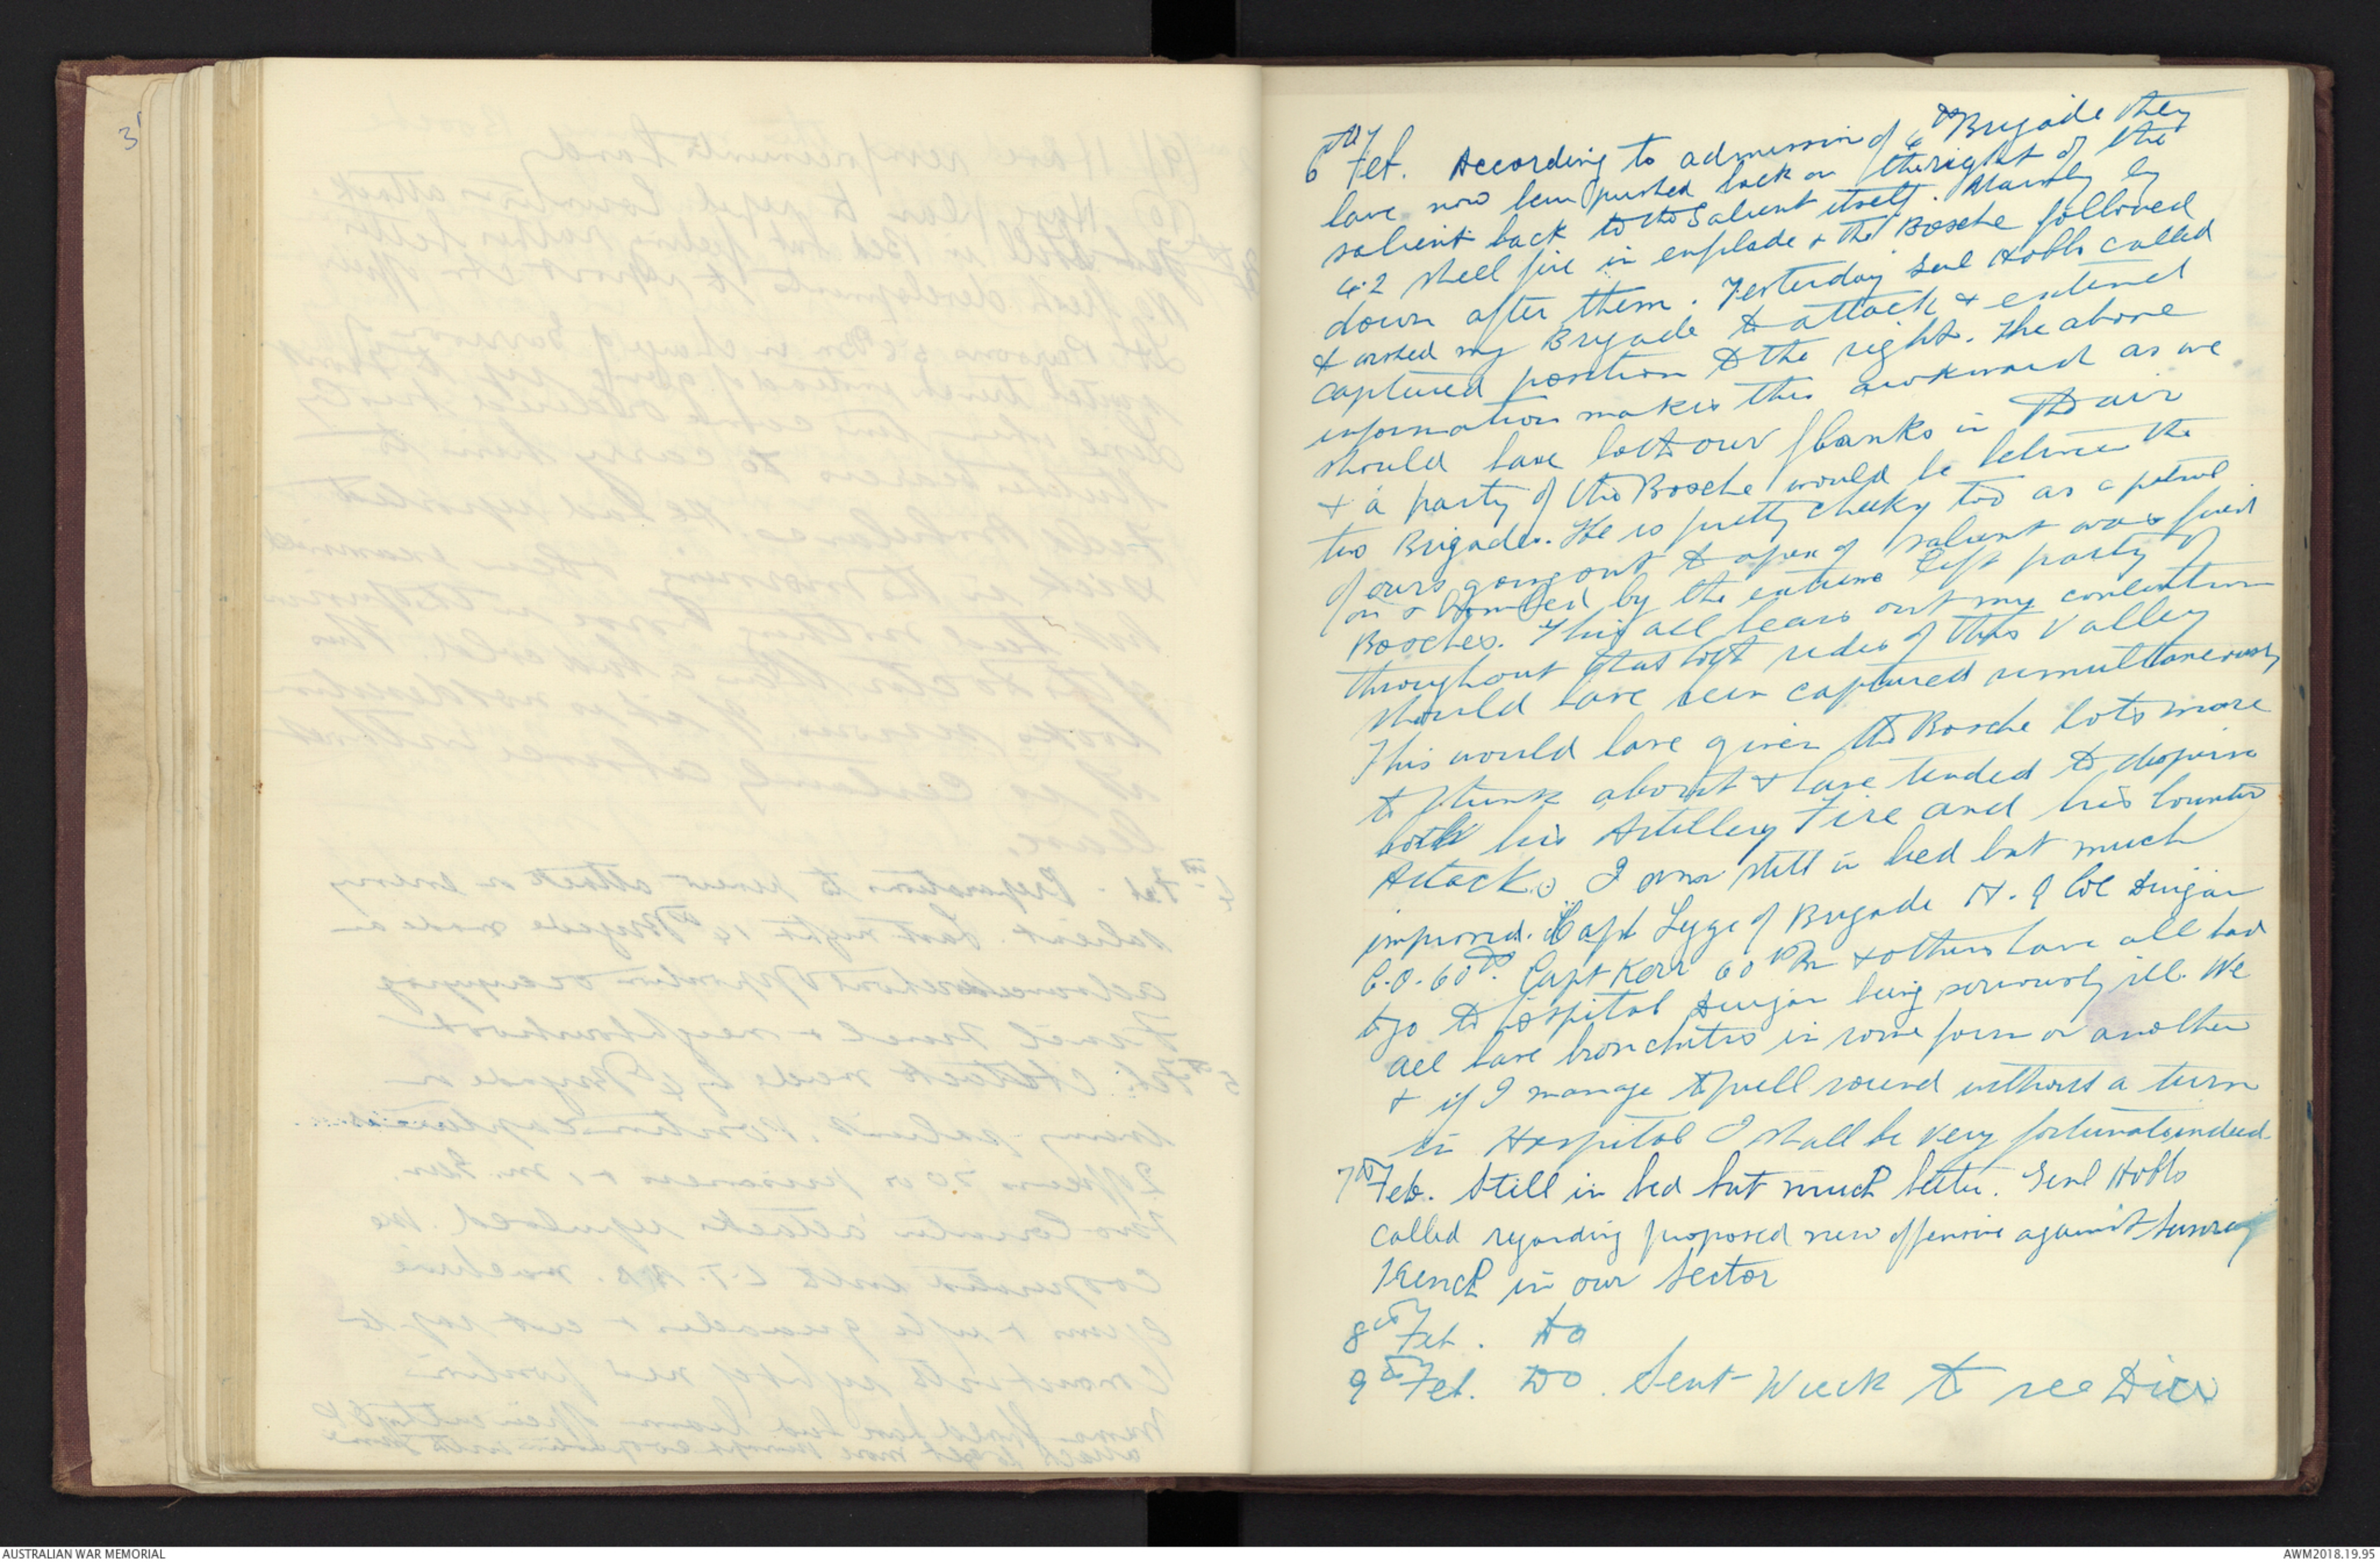 3
6th Feb. According to admission of 6th Brigade they
have now been pushed back on the right of the
salient back to the Salient itself. Mainly by
4.2 shell fire in enfilade & the Bosche followed
down after them. Yesterday Genl Hobbs called
& wished my Brigade to attack & extend
captured position to the right. The above
information makes this awkward as we
should have both our flanks in the air
& a party of the Bosche would be between the
two Brigades. He is pretty cheeky too as a patrol
of ours going out to apex of salient was fired
on & bombed by the extreme left party of
Bosches. This all bears out my contention
throughout that both sides of this Valley
should have been captured simultaneously
This would have given the Bosche lots more
to think about & have tended to disperse
both his Artillery Fire and his Counter
Attack. I am still in bed but much
improved. Capt Legge of Brigade H.Q Col Duigan
C.O. 60th. Capt Kerr 60th Bn & others have all had
to go to hospital Duigan being seriously ill. We
all have bronchitis in some form or another
& if I manage to pull round without a turn
in Hospital I shall be very fortunate indeed.
7th Feb. Still in bed but much better. Genl Hobbs
called regarding proposed new offensive against Sunray
Trench in our Sector
8th Feb. Do
9th Feb. Do. Sent Wieck to see Dice
AUSTRALIAN WAR MEMORIAL
AWM2018.19.95